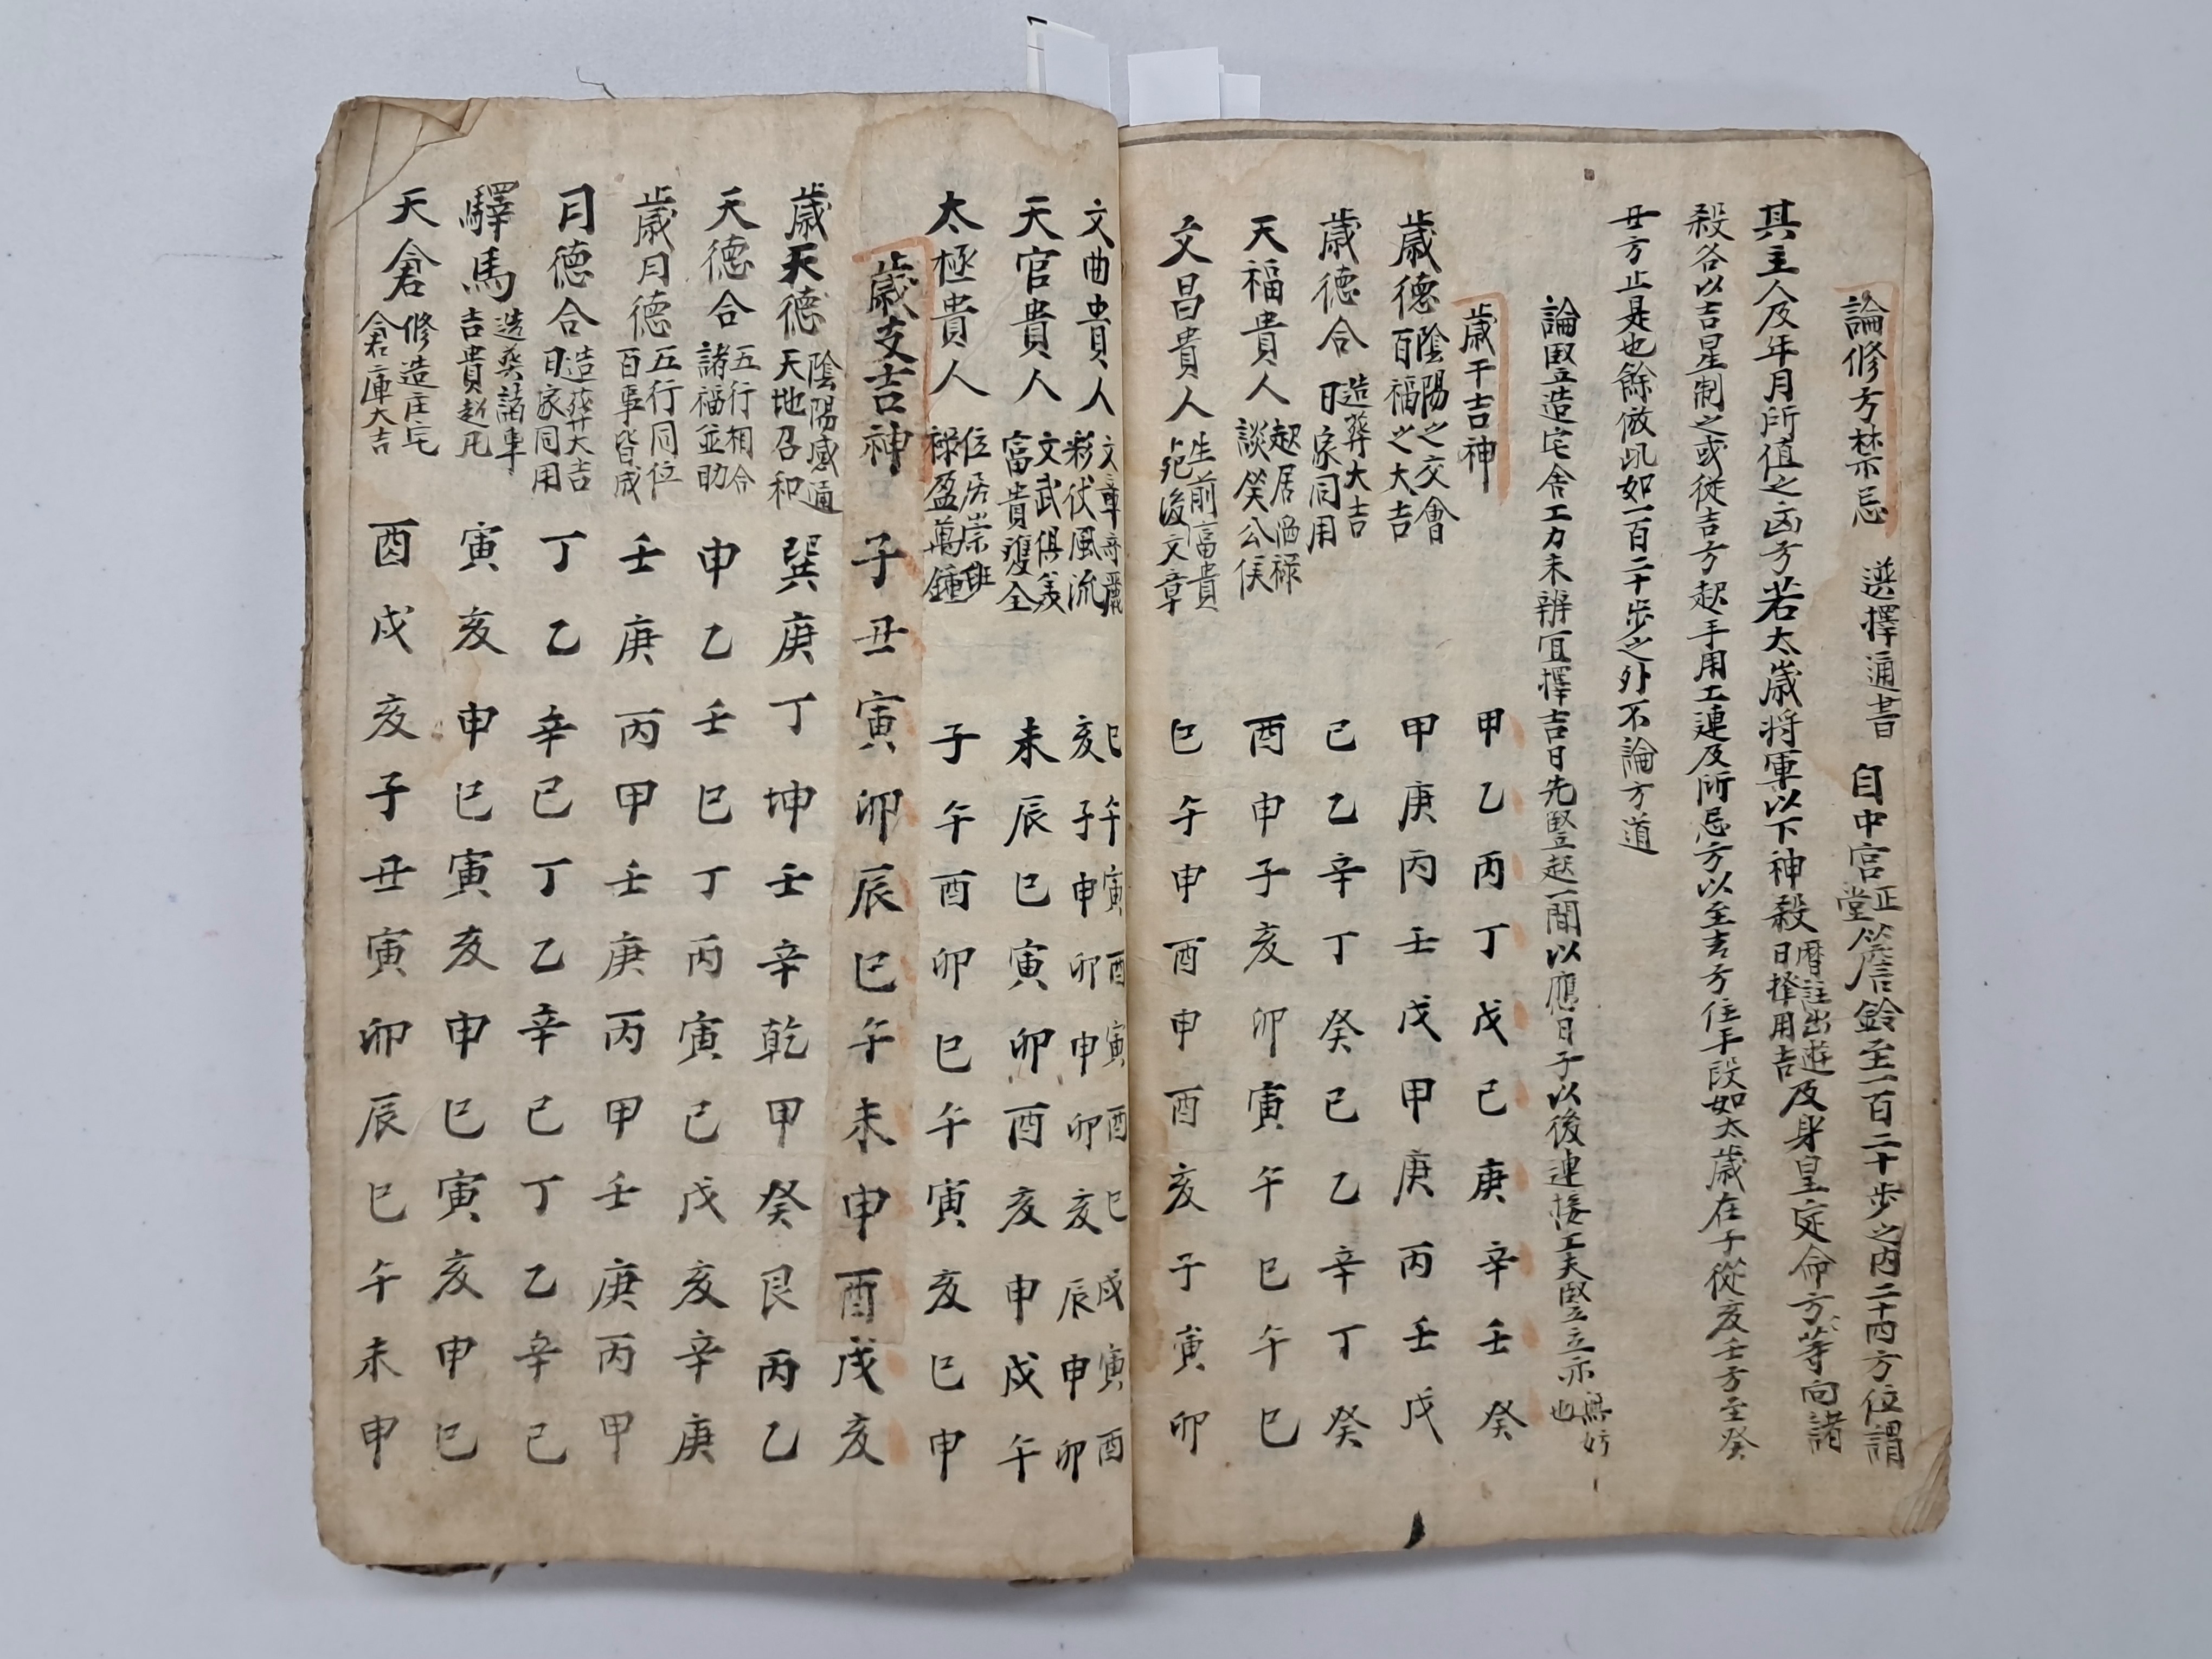 論修方禁忌 選擇通書 自中宮正堂簷鈴至一百二十步之内二十四方位謂
其主人及年月所值之凶方若太歲将軍以下神殺曆註出遊日擇用吉及身皇定命方等向諸
殺各以吉星制之或從吉方起手用工連及所忌方以至吉方住手段如太歲在子從亥壬方至癸
丑方止是也餘倣此如一百二十步之外不論方道
論竪造宅舍工力未辨宜擇吉日先竪起一間以應日子以後連接工夫竪立亦無妨也
歲干吉神 甲 乙 丙 丁 戊 己 庚 辛 壬 癸
歲德 陰陽之交會百福之大吉 甲 庚 丙 壬 戊 甲 庚 丙 壬 戊
歲德合 造葬大吉日家同用 己 乙 辛 丁 癸 己 乙 辛 丁 癸
天福貴人 起居適祿談笑公侯 酉 申 子 亥 卯 寅 午 巳 午 巳
文昌貴人 生前富貴死後文章 巳 午 申 酉 申 酉 亥 子 寅 卯
文曲貴人 文章奇麗彩伏風流 巳亥 午子 寅申 酉卯 寅申 酉卯 巳亥 戌辰 寅申 酉卯
天官貴人 文武俱美富貴雙全 未 辰 巳 寅 卯 酉 亥 申 戌 午
太極貴人 位居崇班祿盈萬鍾 子 午 酉 卯 巳 午 寅 亥 巳 申
歲支吉神 子 丑 寅 卯 辰 巳 午 未 申 酉 戌 亥
歲天德 陰陽感通天地召和 巽 庚 丁 坤 壬 辛 乾 甲 癸 艮 丙 乙
天德合 五行相合諸福並助 申 乙 壬 巳 丁 丙 寅 己 戊 亥 辛 庚
歲月德 五行同位百事皆成 壬 庚 丙 甲 壬 庚 丙 甲 壬 庚 丙 甲
月德合 造葬大吉日家同用 丁 乙 辛 己 丁 乙 辛 己 丁 乙 辛 己
驛馬 造葬諸事吉貴赴凡 寅 亥 申 巳 寅 亥 申 巳 寅 亥 申 巳
天倉 修造庄宅倉庫大吉 酉 戌 亥 子 丑 寅 卯 辰 巳 午 未 申